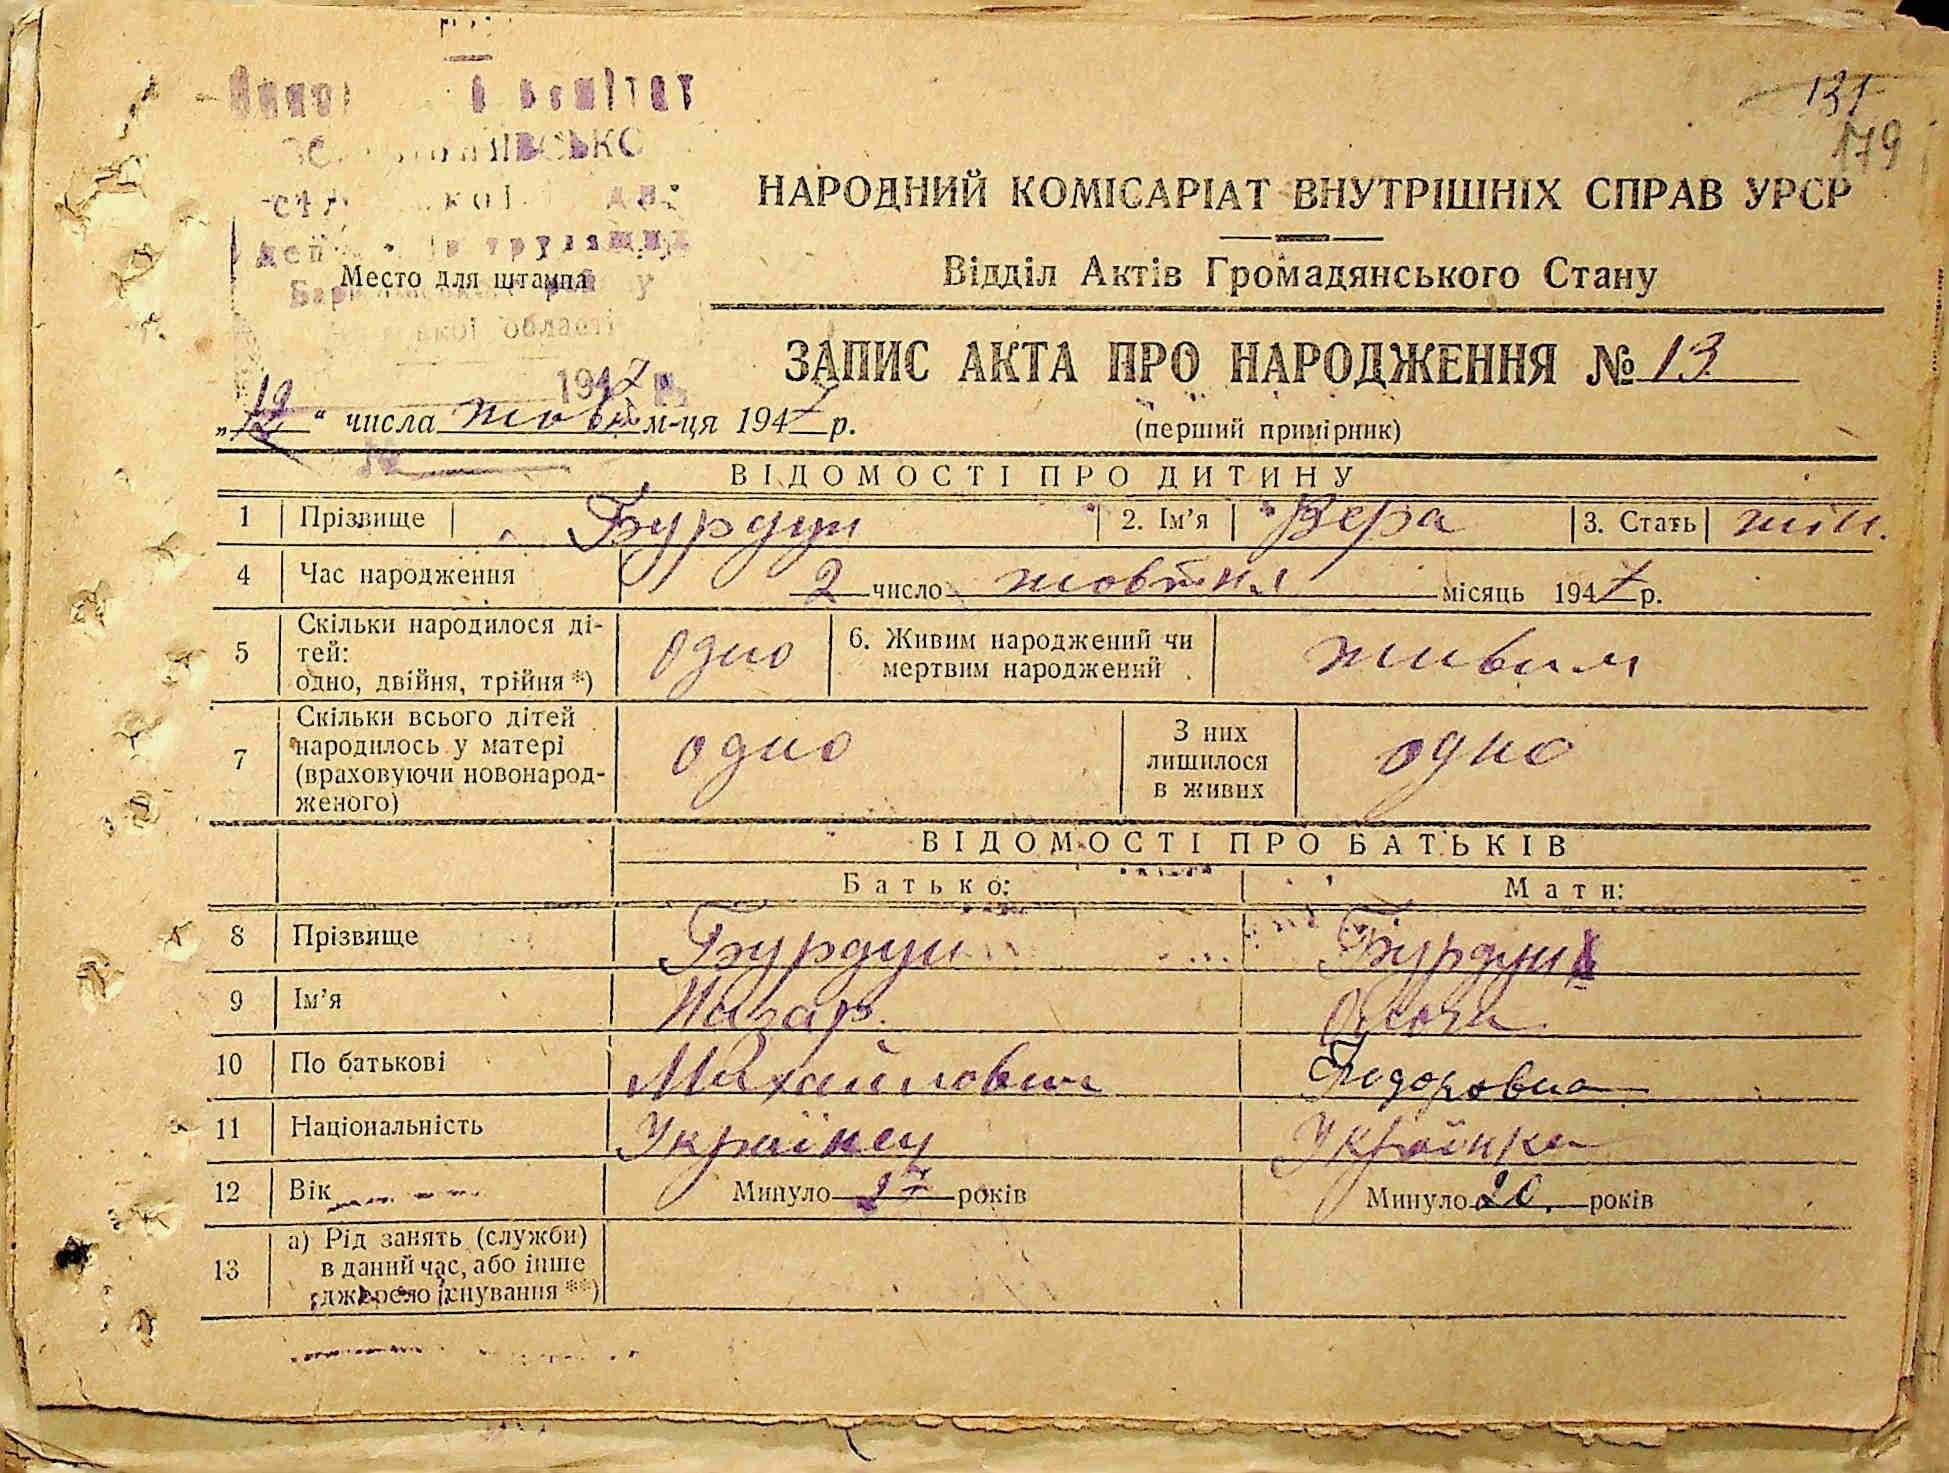 131
179
комітет
НАРОДНИЙ КОМІСАРІАТ ВНУТРІШНІХ СПРАВ УРСР
трудящих
Відділ Актів Громадянського Стану
Место для штампа
області
ЗАПИС АКТА ПРО НАРОДЖЕННЯ № 13
1947 р.
„12“ числа жовт м-ця 1947 р.
(перший примірник)
№
ВІДОМОСТІ ПРО ДИТИНУ
1 Прізвище Бурдун 2. Ім'я Вера 3. Стать жін.
4 Час народження 2 число жовтня місяць 1947 р.
5 Скільки народилося ді-
тей:
одно, двійня, трійня *) одно 6. Живим народжений чи
мертвим народжений живим
7 Скільки всього дітей
народилось у матері
(враховуючи новонарод-
женого) одно З них
лишилося
в живих одно
ВІДОМОСТІ ПРО БАТЬКІВ
Батько: Мати:
8 Прізвище Бурдун Бурдун
9 Ім'я Назар
10 По батькові Михайлович Федоровна
11 Національність Українец Українка
12 Вік Минуло 27 років Минуло 20 років
13 а) Рід занять (служби)
в даний час, або інше
джерело існування **)